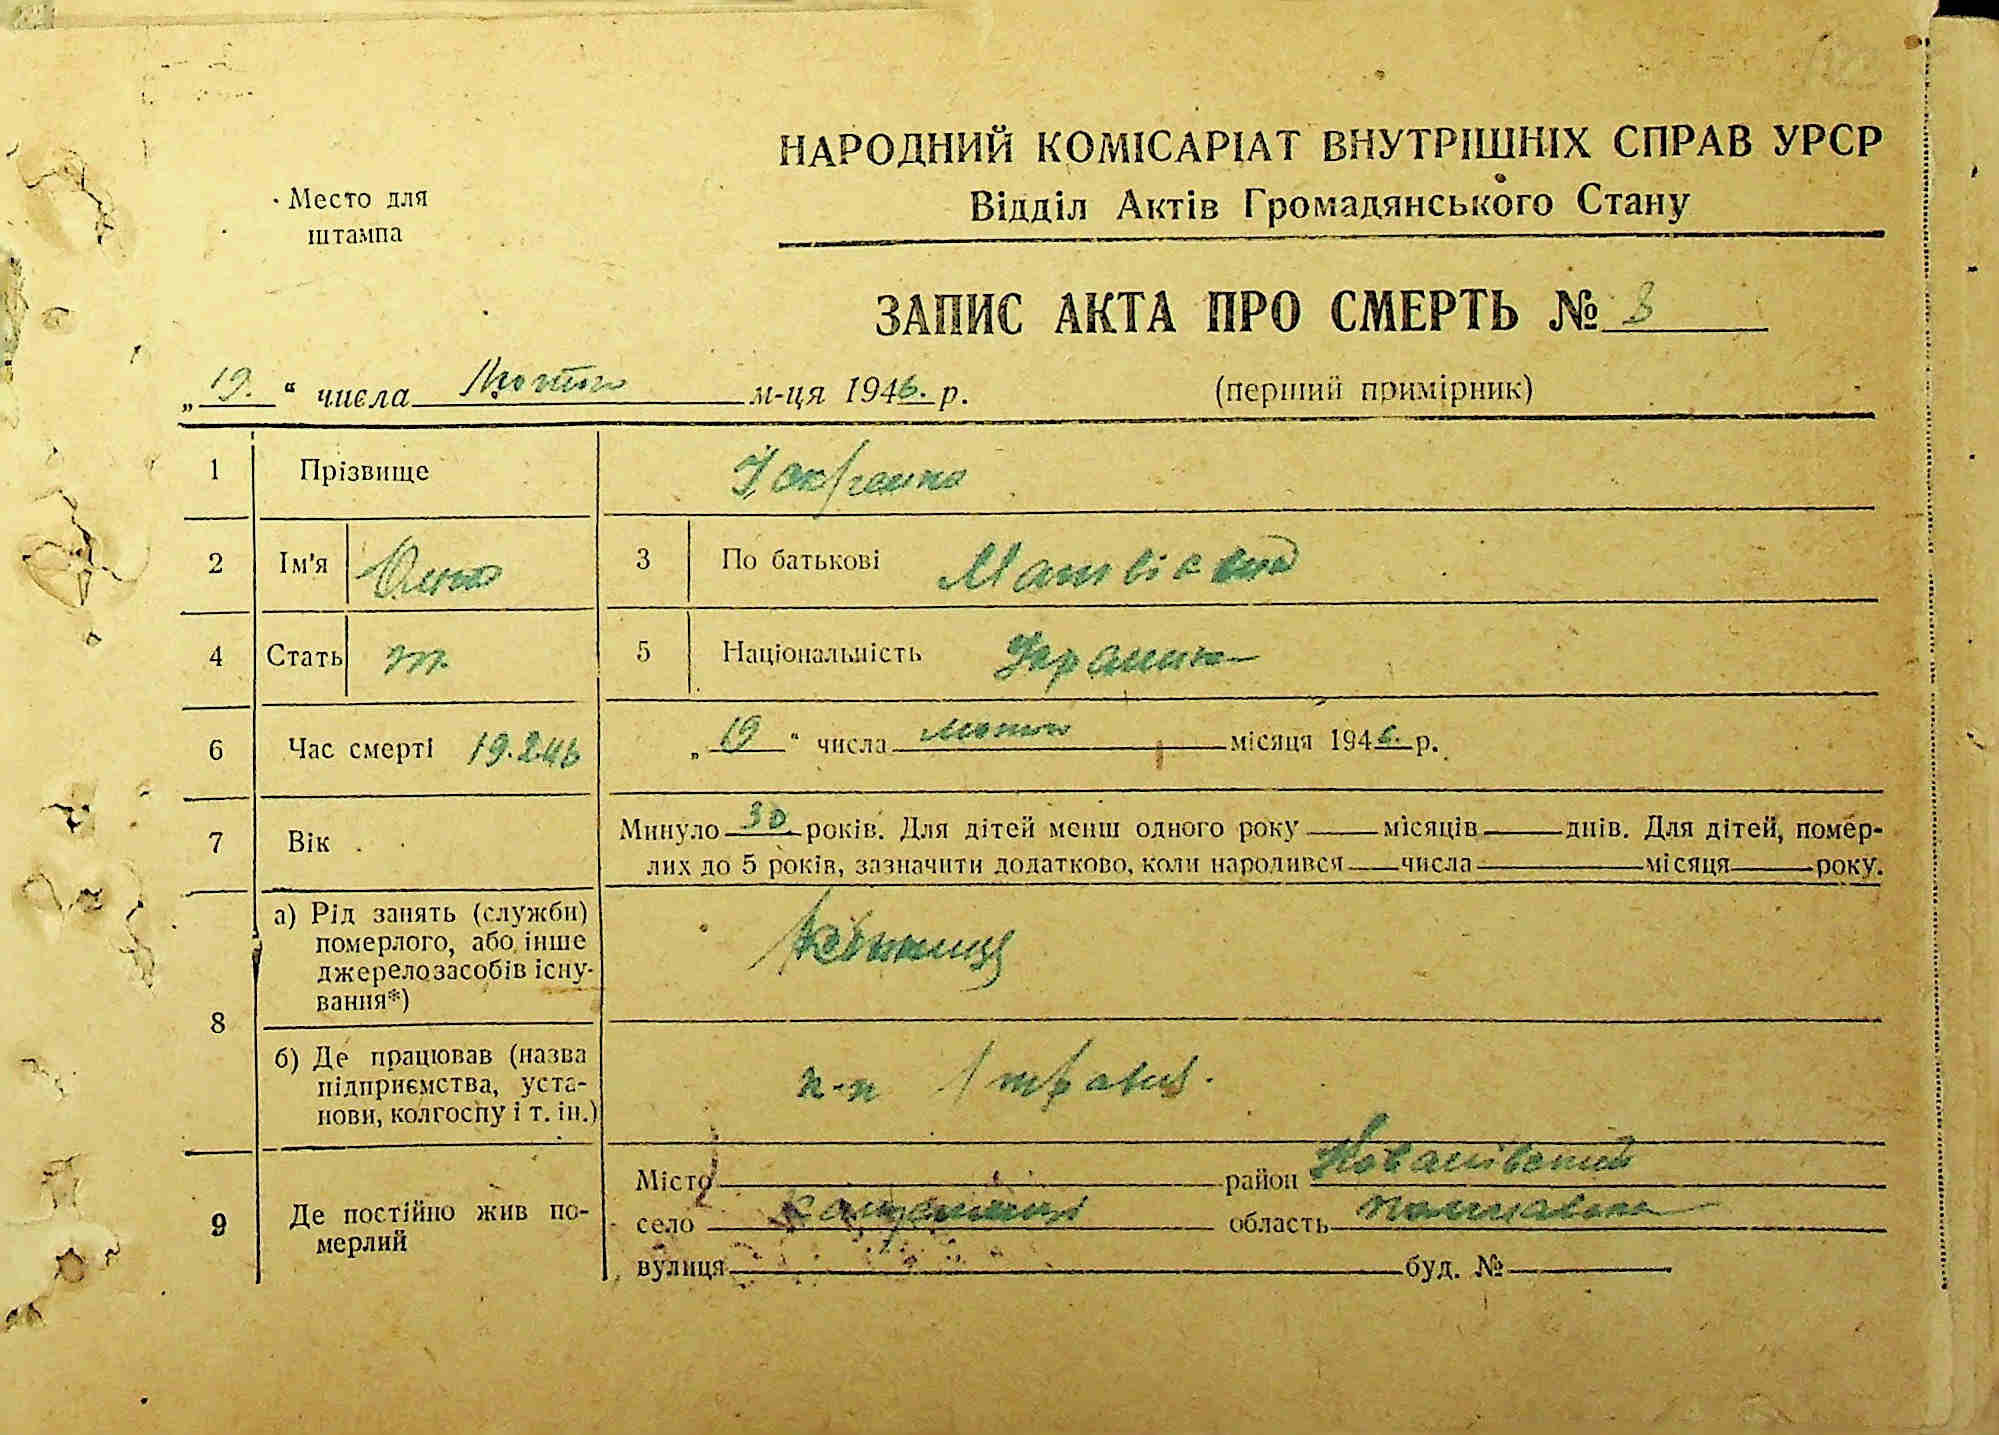 Место для
штампа
НАРОДНИЙ КОМІСАРІАТ ВНУТРІШНІХ СПРАВ УРСР
Відділ Актів Громадянського Стану
ЗАПИС АКТА ПРО СМЕРТЬ № 8
„19.“ числа Лютого м-ця 1946. р. (перший примірник)
1 Прізвище
2 Ім'я 3 По батькові Матвіевна
4 Стать 5 Національність Украинк
6 Час смерті 19.2 46 „19“ числа лютого місяця 1946. р.
7 Вік Минуло 30 років. Для дітей менш одного року місяців днів. Для дітей, помер-
лих до 5 років, зазначити додатково, коли народився числа місяця року.
8 а) Рід занять (служби)
померлого, або інше
джерело засобів існу-
вання*)
б) Де працював (назва
підприємства, уста-
нови, колгоспу і т. ін.)
9 Де постійно жив по-
мерлий
Місто район
село область Полтавська
вулиця буд. №